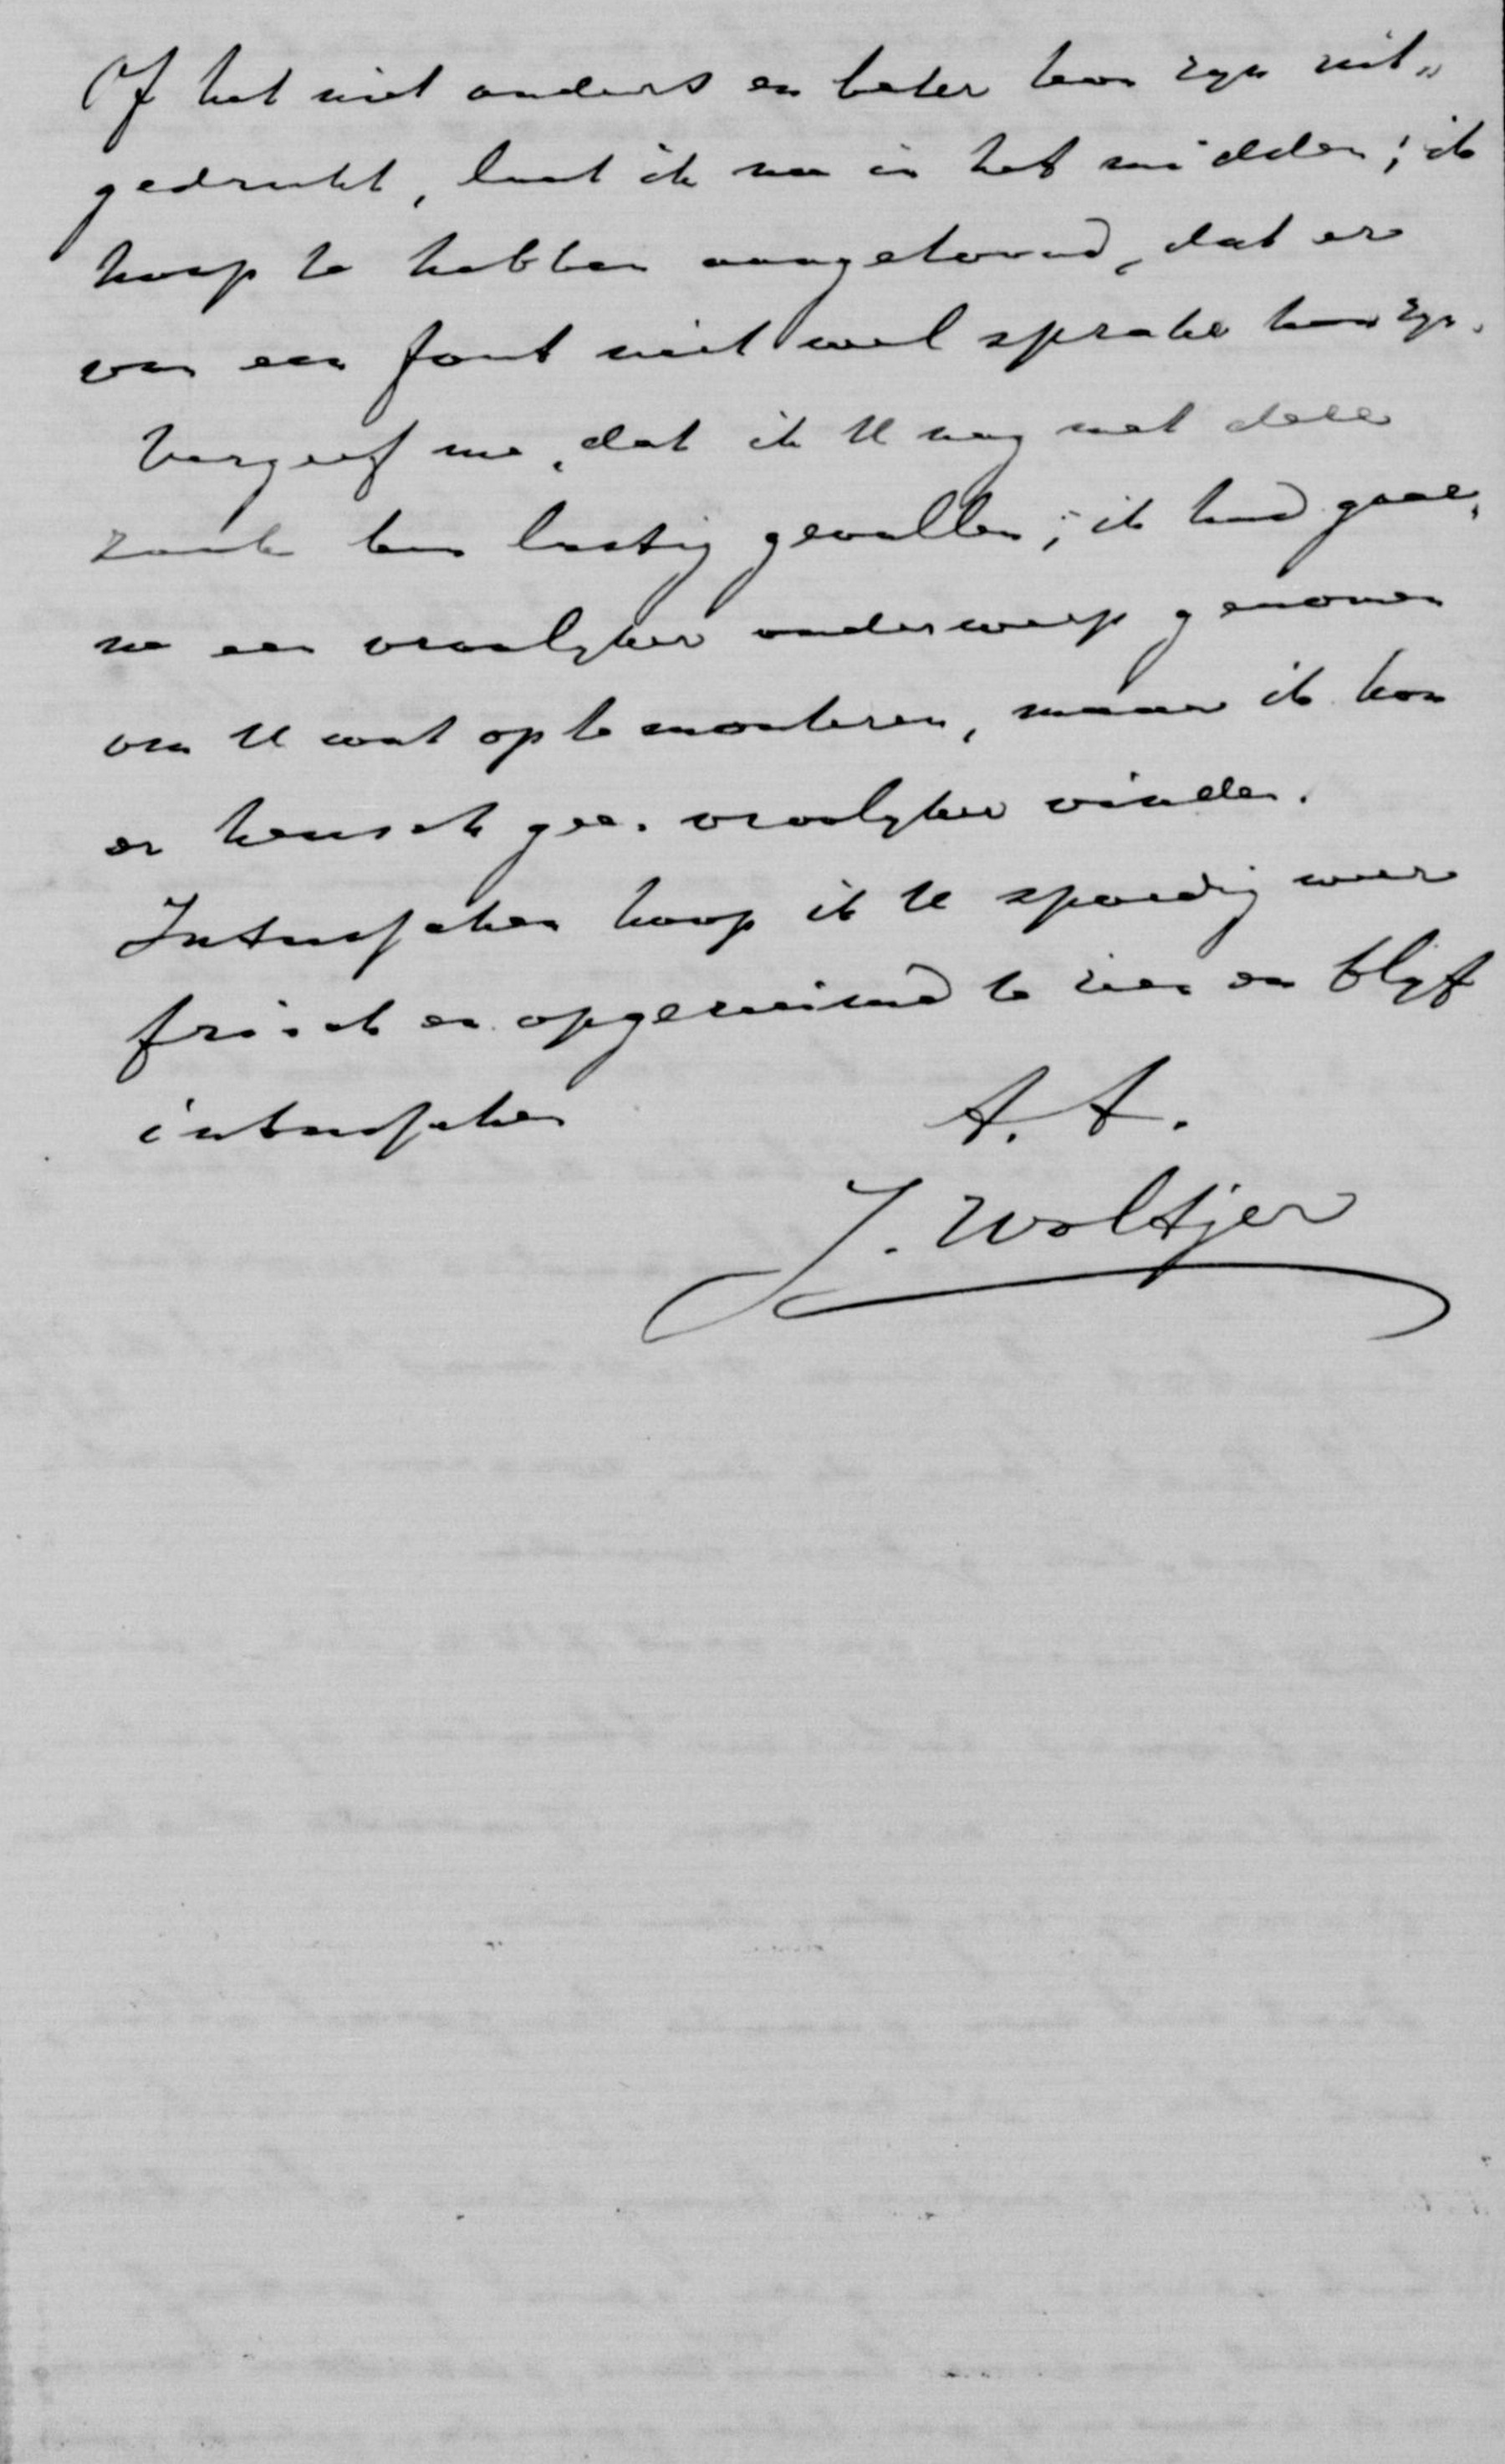 Of het niet anders en beter kon zijn uit„
gedrukt, laat ik nu in het midden; ik
hoop te hebben aangetoond, dat er
van een fout niet wel sprake kan zijn.
Vergeef me, dat ik U nog met deze
zaak ben lastig gevallen; ik had gaar„
ne een vroolijker onderwerp genomen
om U wat op te monteren, maar ik kon
er heusch geen vroolijker vinden.
Intusschen hoop ik U spoedig weer
frisch en opgeruimd te zien en blijf
intusschen t.t.
J. Woltjer